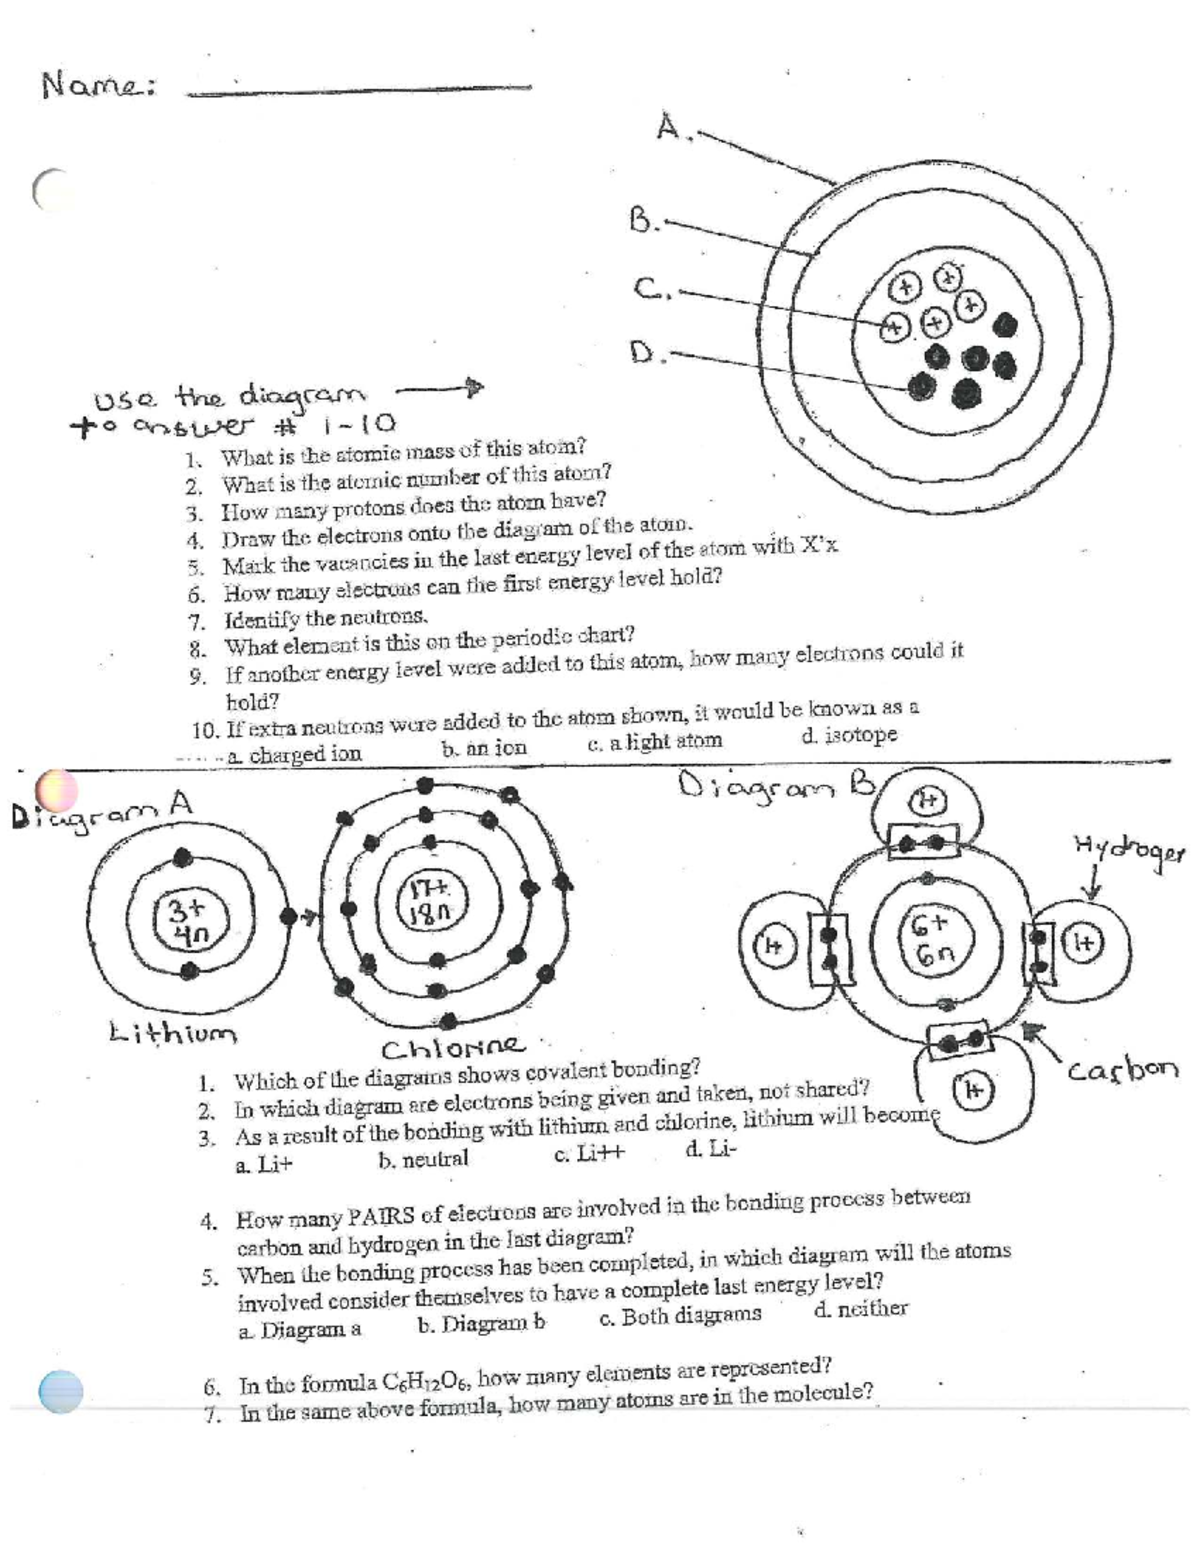 Name:
A.
B.
C.
D.
+ + + + + +
use the diagram
to answer # 1-10
1. What is the atomic mass of this atom?
2. What is the atomic number of this atom?
3. How many protons does the atom have?
4. Draw the electrons onto the diagram of the atom.
5. Mark the vacancies in the last energy level of the atom with X'x
6. How many electrons can the first energy level hold?
7. Identify the neutrons.
8. What element is this on the periodic chart?
9. If another energy level were added to this atom, how many electrons could it
hold?
10. If extra neutrons were added to the atom shown, it would be known as a
a. charged ion b. an ion c. a light atom d. isotope
Diagram A
3+
4n
Lithium
17+
18n
Chlorine
Diagram B
1+
Hydrogen
1+
6+
6n
1+
1+
carbon
1. Which of the diagrams shows covalent bonding?
2. In which diagram are electrons being given and taken, not shared?
3. As a result of the bonding with lithium and chlorine, lithium will become
a. Li+ b. neutral c. Li++ d. Li-
4. How many PAIRS of electrons are involved in the bonding process between
carbon and hydrogen in the last diagram?
5. When the bonding process has been completed, in which diagram will the atoms
involved consider themselves to have a complete last energy level?
a. Diagram a b. Diagram b c. Both diagrams d. neither
6. In the formula C₆H₁₂O₆, how many elements are represented?
7. In the same above formula, how many atoms are in the molecule?